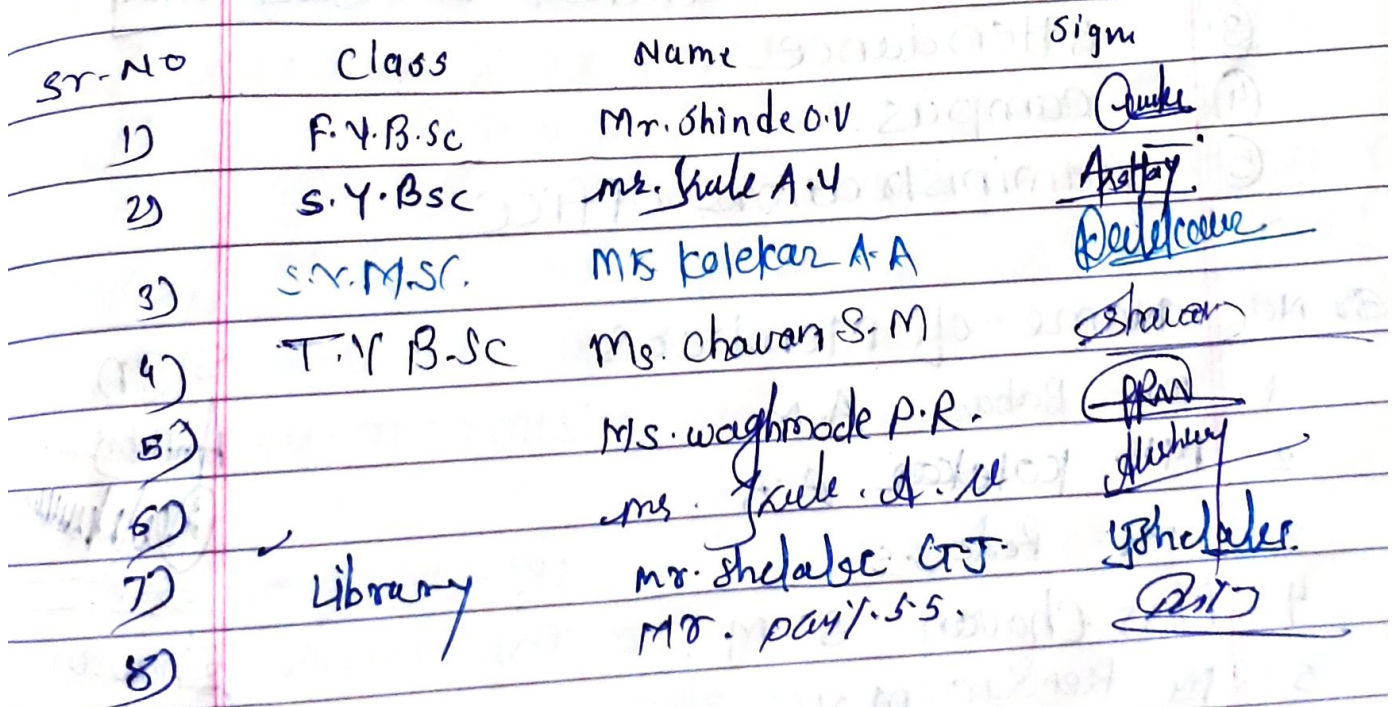 Sr-No Class Name Sign
1) F.Y.B.Sc Mr. Shinde O.V
2) S.Y.Bsc Mr. Kale A.Y Akshay.
3) S.Y.M.SC. Ms Kolekar A.A
4) T.Y B.Sc Ms. Chavan S.M Shavan
5) Ms. Waghmode P.R. PRW
6) Ms. A.U
7) Library Mr. Shelake G.J. GJShelake.
8) Mr. S.S.